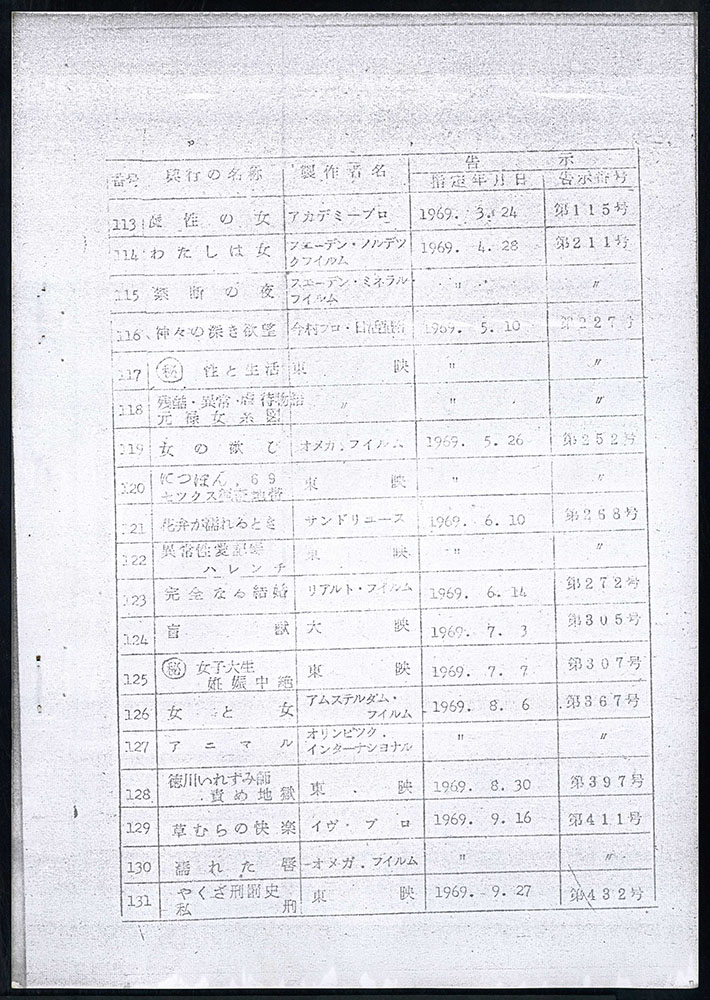 番号 興行の名称 製作者名 告示
指定年月日 告示番号
113 性の女 アカデミープロ 1969. 3.24 第115号
114 わたしは女 スエーデン・ノルデツ 1969. 4.28 第211号
クフイルム
115 禁断の夜 スエーデン・ミネラル・ 〃 〃
フイルム
116 神々の深き欲望 今村プロ・日活 1969. 5.10 第227号
117 ㊙ 性と生活 東映 〃 〃
118 残酷・異常・虐待物語 〃 〃 〃
元禄女系図
119 女の歓び オメガ.フイルム 1969. 5.26 第252号
120 につぽん.69 東映 〃 〃
セツクス猟奇地帯
121 花弁が濡れるとき サンドリユース 1969. 6.10 第268号
122 異常性愛記録 東映 〃 〃
ハレンチ
123 完全なる結婚 リアルト・フイルム 1969. 6.14 第272号
124 盲獣 大映 1969. 7. 3 第305号
125 ㊙ 女子大生 東映 1969. 7. 7 第307号
妊娠中絶
126 女と女 アムステルダム・ 1969. 8. 6 第367号
フイルム
127 アニマル オリンピツク. 〃 〃
インターナショナル
128 徳川いれずみ師 東映 1969. 8.30 第397号
責め地獄
129 草むらの快楽 イヴ・プロ 1969. 9.16 第411号
130 濡れた唇 オメガ.フイルム 〃 〃
131 やくざ刑罰史 東映 1969. 9.27 第432号
私刑